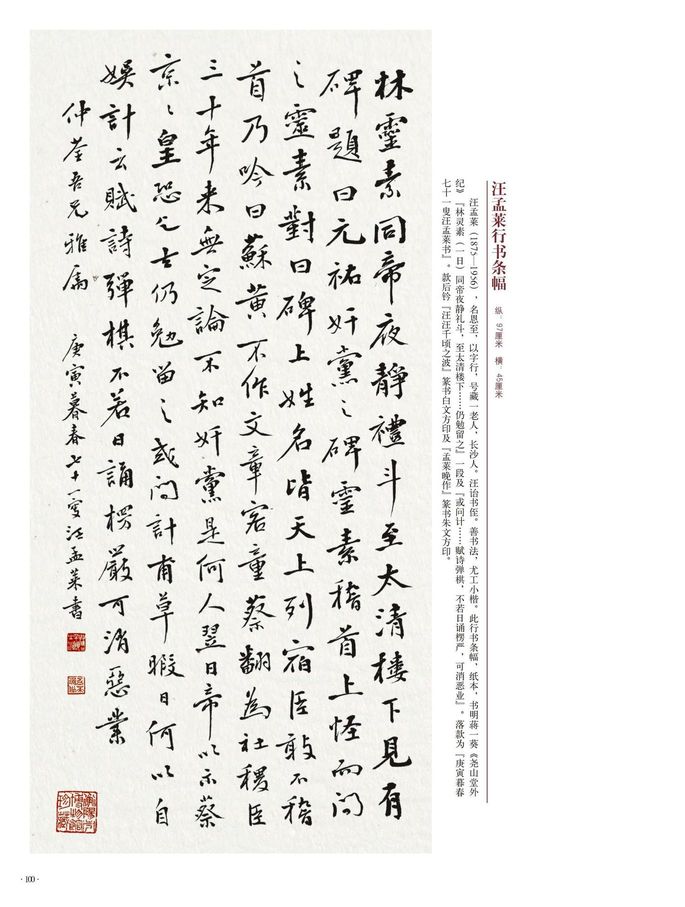 汪孟莱行书条幅
纵：97厘米 横：45厘米
汪孟莱（1875—1956），名恩至，以字行，号藏一老人，长沙人。汪诒书侄。善书法，尤工小楷。此行书条幅，纸本，书明蒋一葵《尧山堂外
纪》『林灵素（一日）同帝夜静礼斗，至太清楼下……仍勉留之』一段及『或问计……赋诗弹棋，不若日诵楞严，可消恶业』。落款为『庚寅暮春
七十一叟汪孟莱书』。款后钤『汪汪千顷之波』篆书白文方印及『孟莱晚作』篆书朱文方印。
林靈素同帝夜靜禮斗至太清樓下見有
碑題曰元祐奸黨之碑靈素稽首上怪而问
之靈素對曰碑上姓名皆天上列宿臣敢不稽
首乃吟曰蘇黄不作文章客童蔡翻為社稷臣
三十年来無定論不知奸黨是何人翌日帝以示蔡
京〻皇恐乞去仍勉留之或问計甫草暇日何以自
娛計云賦詩彈棋不若日誦楞嚴可消惡業
仲荃吾兄雅屬
庚寅暮春七十一叟汪孟莱書
·100·